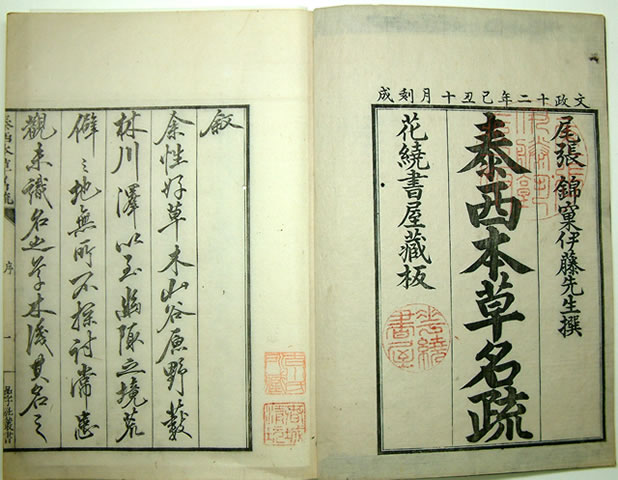 文政十二年己丑十月刻成
尾張 錦窠伊藤先生撰
泰西本草名疏
花繞書屋藏板
花繞書屋
敘
余性好草木山谷原野藪
林川澤以至幽陬之境荒
僻之地無所不探討常患
觀未識名之草木淺其名之
泰西本草名疏 序 一